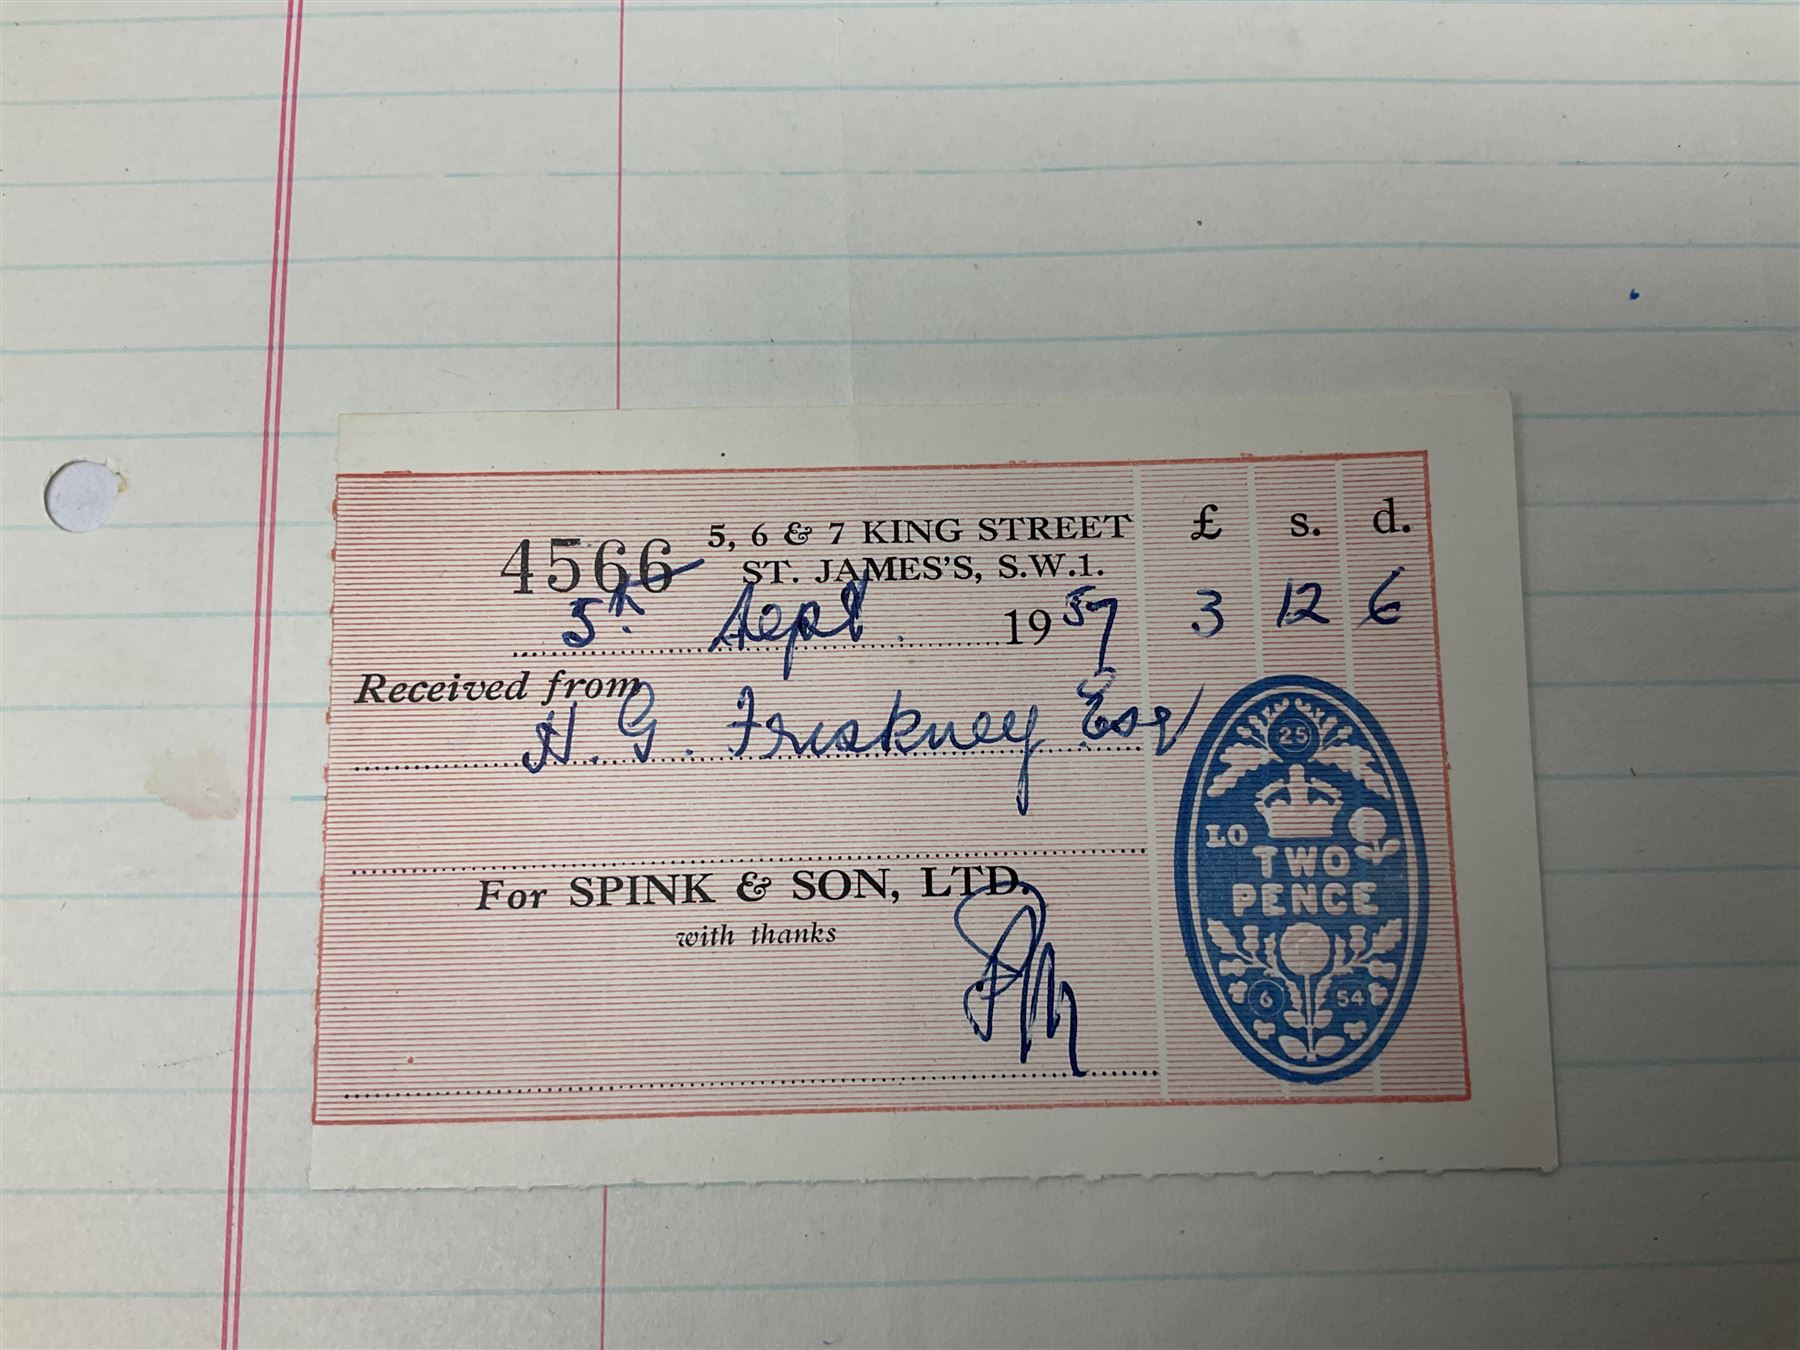 4566 5, 6 & 7 KING STREET
ST. JAMES'S, S.W.1.
£ s. d.
5th Sept. 1957 3 12 6
Received from
H. G. Friskney Esq
For SPINK & SON, LTD.
with thanks
25
LO
TWO
PENCE
6 54